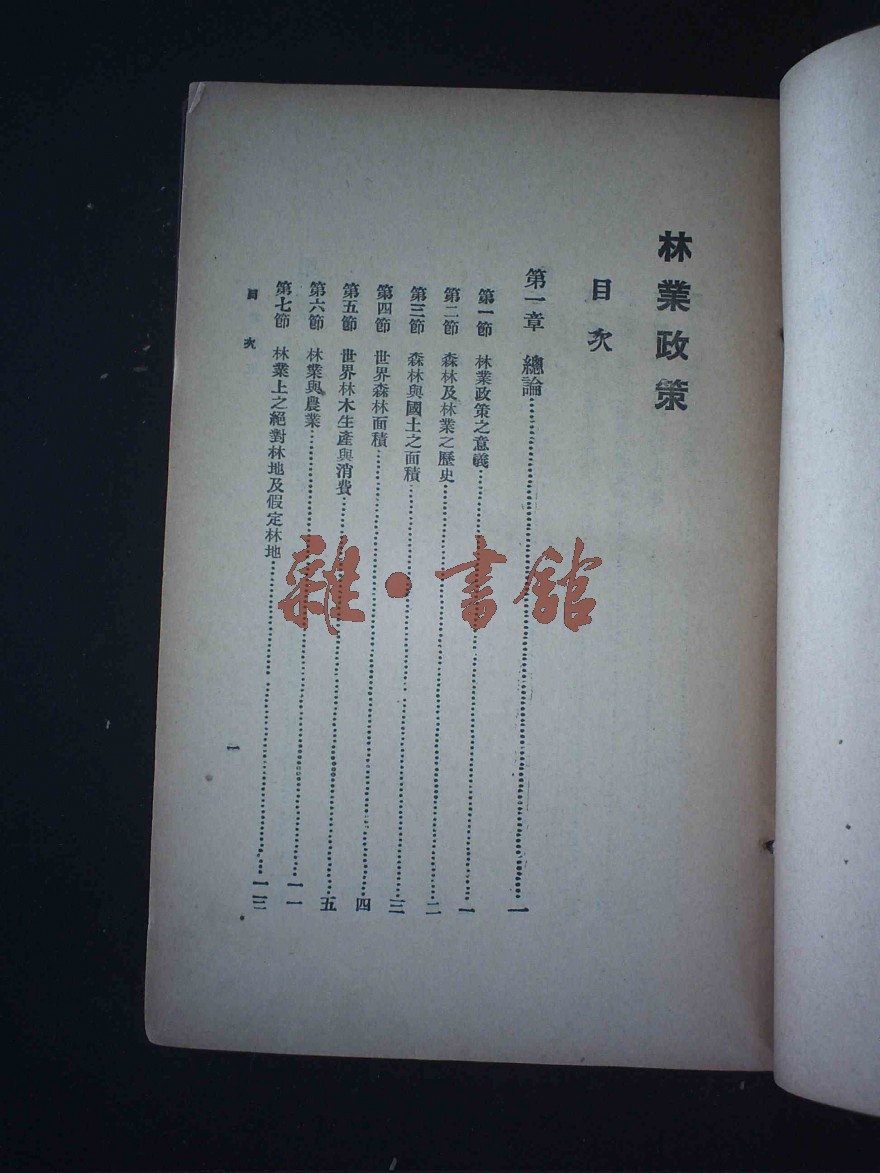 林業政策
目次
第一章 總論……一
第一節 林業政策之意義……一
第二節 森林及林業之歷史……二
第三節 森林與國土之面積……三
第四節 世界森林面積……四
第五節 世界林木生產與消費……五
第六節 林業與農業……一一
第七節 林業上之絕對林地及假定林地……一三
目次
一
雜·書館